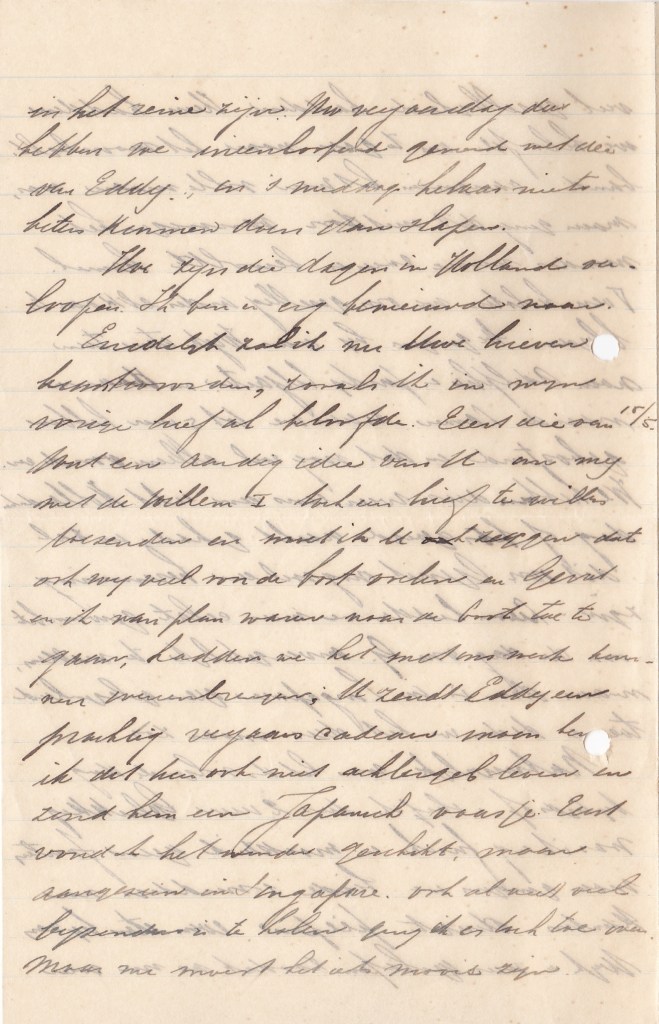 in het reine zijn. Nu verjaardag dus
hebben we gevierd met die
van Eddy., en 's middags helaas niets
beters kunnen doen dan slapen.
Hoe zijn die dagen in Holland ver-
loopen. Ik ben er erg benieuwd naar.
Eindelijk zal ik nu Uwe brieven
beantwoorden, zooals ik in mijn
vorige brief al beloofde. Eerst die van 15/5.
Wat een aardig idee van U om mij
met de Willem I toch een brief te willen
toezenden en moet ik U ook zeggen dat
ook wij veel van de boot en Gerrit
en ik van plan waren naar de boot toe te
gaan, hadden we het met ons werk kun-
nen overeenbrengen; U zendt Eddy een
prachtig verjaars cadeau maar ben
ik dit keer ook niet achtergebleven en
zend hem een Japansch vaasje. Eerst
vond ik het minder geschikt, maar
aangezien in Singapore. ook al niet veel
bijzonders is te halen ging ik er toch toe over.
Maar nu moest het iets moois zijn.